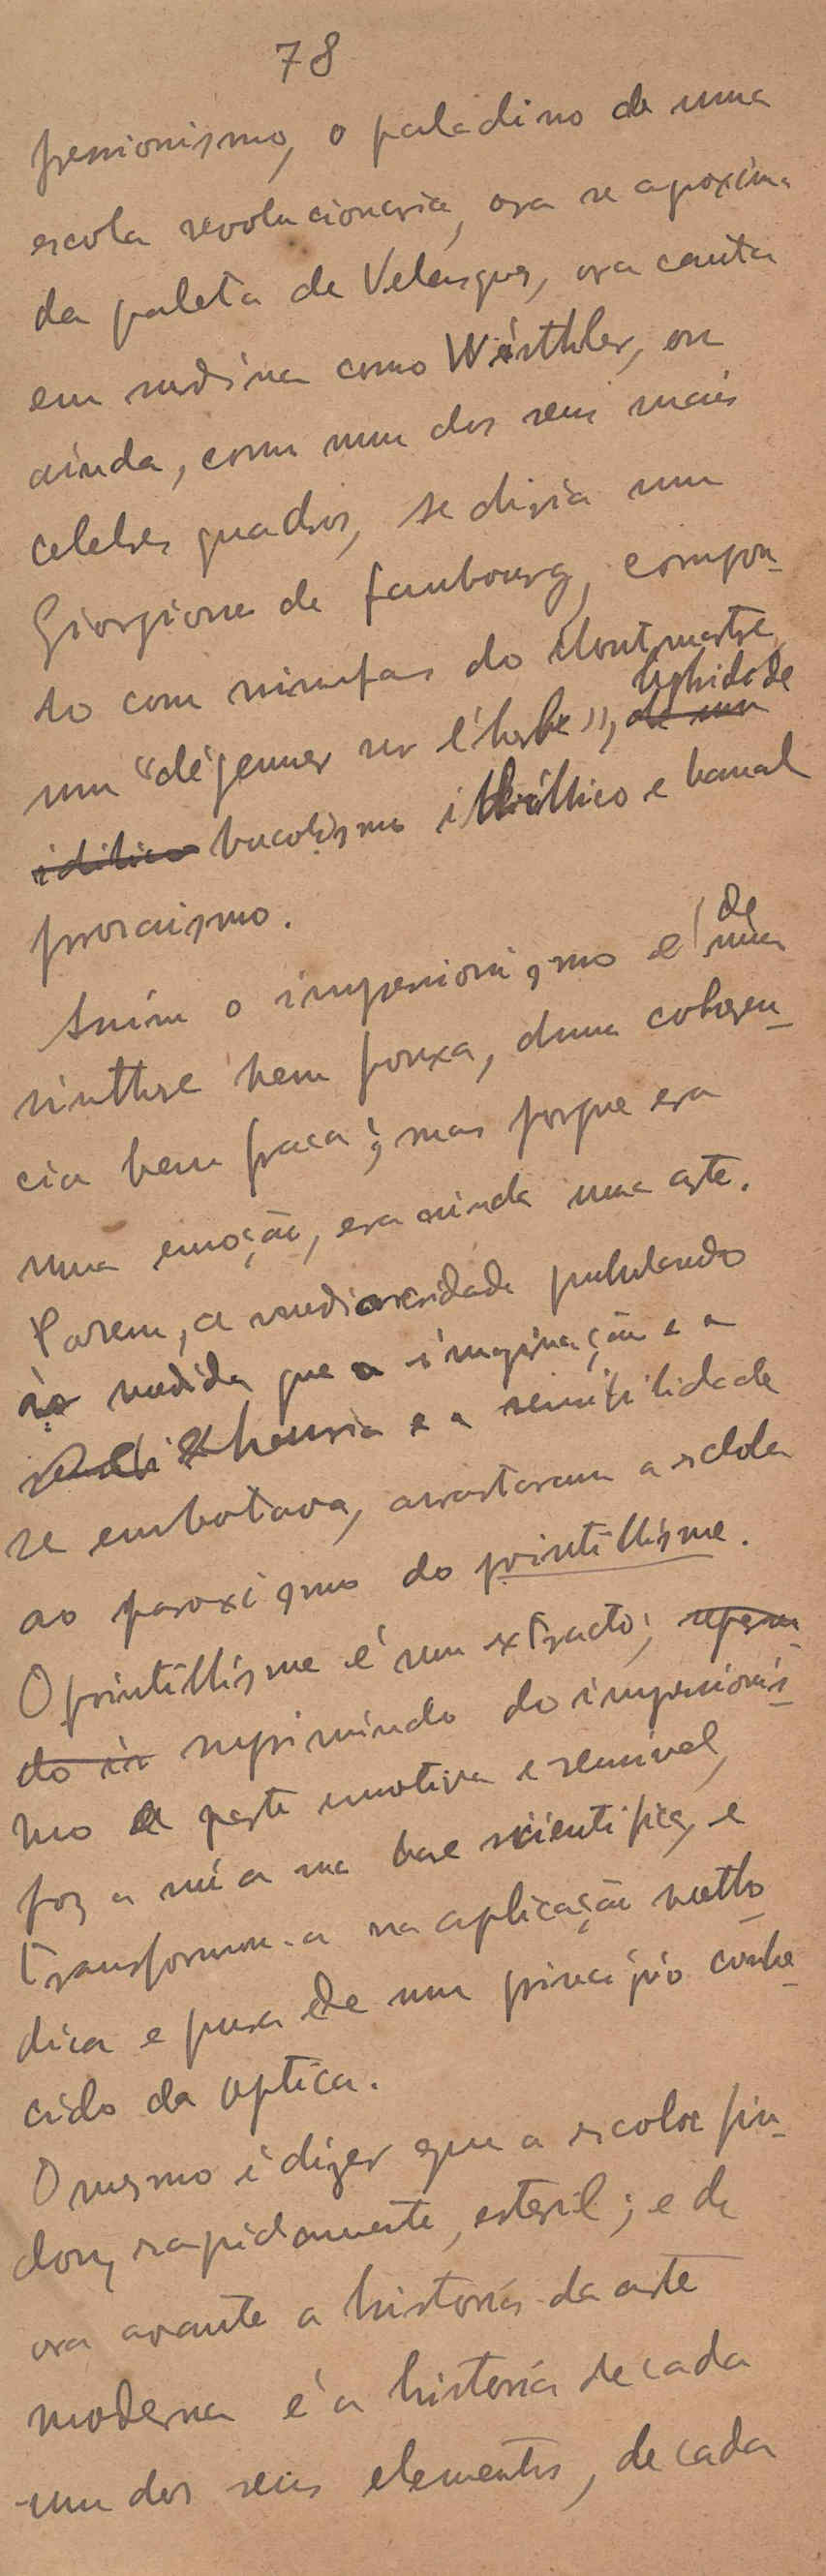 78
pressionismo, o paladino de uma
escola revolucionaria, ora se aproxima
da paleta de Velasques, ora canta
em surdina como Wisthler, ou
ainda, como num dos seus mais
celebres quadros, se diria um
Giorgione de faubourg, compon-
do com nimfas do Montmartre,
um "déjeuner sur l'herbe", hybridade
de um
idilico bucolismo e banal
prosaismo.
Assim o impressionismo é de uma
sinthese bem frouxa, duma coheren-
cia bem fraca; mas porque era
uma emoção, era ainda uma arte.
Porem, a mediocridade pululando
á medida que a imaginação e a
e a sensibilidade
se embotava, arrastaram a escola
ao paroxismo do pointillisme.
O pointillisme é um extracto;
do suprimindo do impressionis-
mo a parte emotiva e sensivel,
foz a na base scientifica, e
transformou-a na aplicação metho-
dica e pura de um principio conhe-
cido da optica.
O mesmo é dizer que a escola fin-
dou, rapidamente, esteril; e de
ora avante a historia da arte
moderna é a historia de cada
um dos seus elementos, de cada